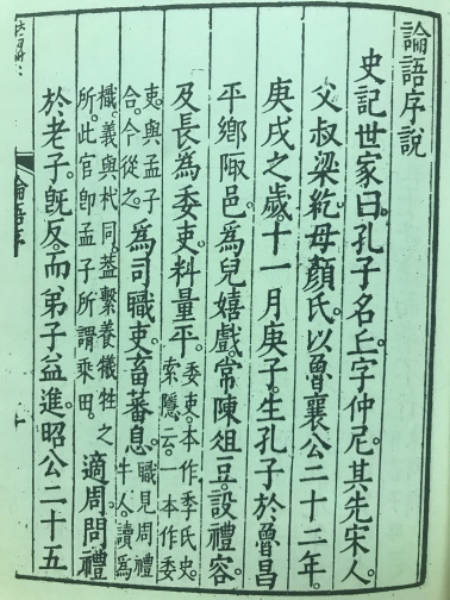 論語序說
史記世家曰。孔子名丘。字仲尼。其先宋人。
父叔梁紇。母顏氏。以魯襄公二十二年。
庚戌之歲。十一月庚子。生孔子於魯昌
平鄉陬邑。為兒嬉戲。常陳俎豆。設禮容。
及長為委吏。料量平。委吏。本作季氏史。索隱云。一本作委
吏。與孟子合。今從之。為司職吏。畜蕃息。職見周禮牛人。讀為
樴。義與杙同。蓋繫養犧牲之所。此官即孟子所謂乘田。適周。問禮
於老子。旣反。而弟子益進。昭公二十五
論語序